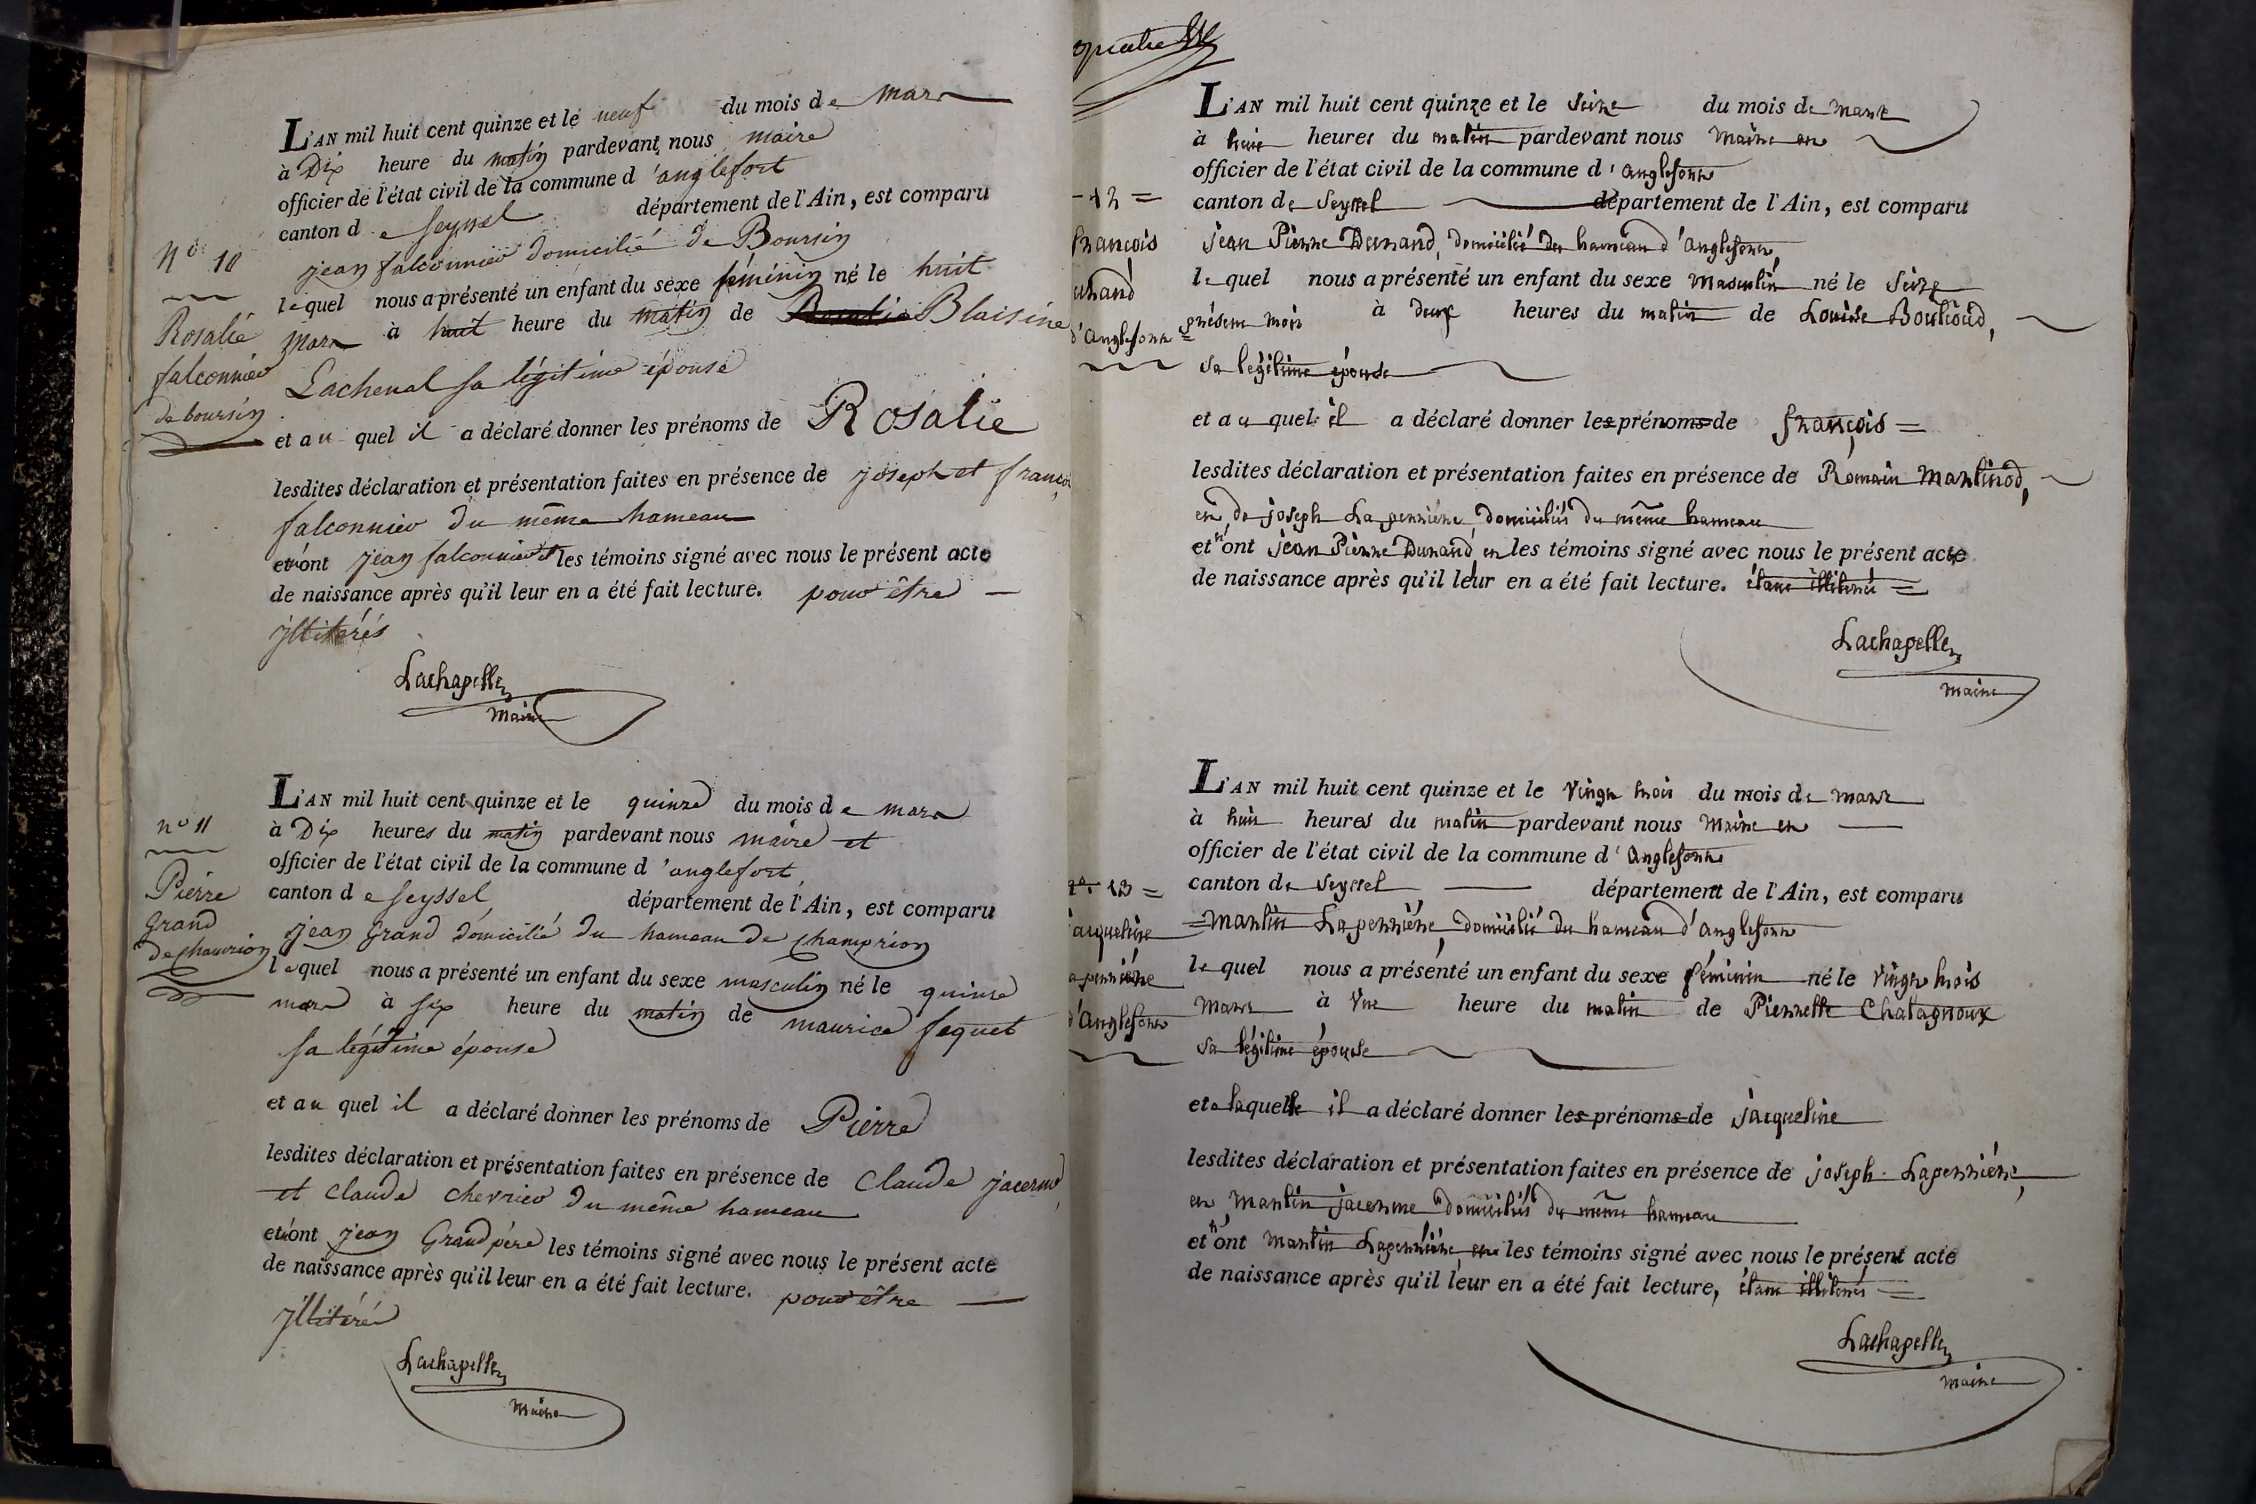 L'AN mil huit cent quinze et le neuf du mois de mars
à Dix heure du matin pardevant nous maire
officier de l'état civil de la commune d'anglefort
canton de Seyssel département de l'Ain, est comparu
jean falconnier domicilié de Boursin
lequel nous a présenté un enfant du sexe féminin né le huit
mars à huit heure du matin de Rosalie Blaisine
Lachenal sa légitime épouse
et au quel il a déclaré donner les prénoms de Rosalie
lesdites déclaration et présentation faites en présence de joseph et françois
falconnier du même hameau
et n'ont jean falconnier et les témoins signé avec nous le présent acte
de naissance après qu'il leur en a été fait lecture. pour être
jllitérés
Lachapelle
Maire
n° 10
Rosalie
falconnier
de boursin
L'AN mil huit cent quinze et le quinze du mois de mars
à Dix heures du matin pardevant nous maire et
officier de l'état civil de la commune d'anglefort
canton de Seyssel département de l'Ain, est comparu
jean Grand domicilié du hameau de champrion
lequel nous a présenté un enfant du sexe masculin né le quinze
mars à six heure du matin de maurice faquet
sa légitime épouse
et au quel il a déclaré donner les prénoms de Pierre
lesdites déclaration et présentation faites en présence de Claude jacermo
et claude chevrier du même hameau
et n'ont jean Grand père les témoins signé avec nous le présent acte
de naissance après qu'il leur en a été fait lecture. pour être
jllitéré
Lachapelle
Maire
n° 11
Pierre
Grand
de chanrion
quatre
L'AN mil huit cent quinze et le Seize du mois de mars
à huit heures du matin pardevant nous Maire et
officier de l'état civil de la commune d'anglefort
canton de Seyssel département de l'Ain, est comparu
jean Pierre Durand, domicilié du hameau d'anglefort,
lequel nous a présenté un enfant du sexe Masculin né le Seize
présent mois à deux heures du matin de Louise Boulioud,
sa légitime épouse
et au quel il a déclaré donner les prénoms de françois =
lesdites déclaration et présentation faites en présence de Romain Martinod,
et de joseph Laperrière, domiciliés du même hameau
et n'ont jean Pierre Durand et les témoins signé avec nous le présent acte
de naissance après qu'il leur en a été fait lecture. étant illitéré =
Lachapelle
Maire
- 12 =
françois
urand
d'Anglefort =
L'AN mil huit cent quinze et le Vingt trois du mois de mars
à huit heures du matin pardevant nous Maire et
officier de l'état civil de la commune d'anglefort
canton de Seyssel département de l'Ain, est comparu
= Martin Laperrière, domicilié du hameau d'anglefort
lequel nous a présenté un enfant du sexe féminin né le Vingt trois
Mars à Une heure du matin de Pierrette Chatagnoux
sa légitime épouse
et a laquelle il a déclaré donner les prénoms de jacqueline
lesdites déclaration et présentation faites en présence de joseph Laperrière,
et Martin jacerme domiciliés du même hameau
et n'ont Martin Laperrière et les témoins signé avec nous le présent acte
de naissance après qu'il leur en a été fait lecture, étant illitérés =
Lachapelle
Maire
n° 13 =
jacqueline
aperrière
d'Anglefort